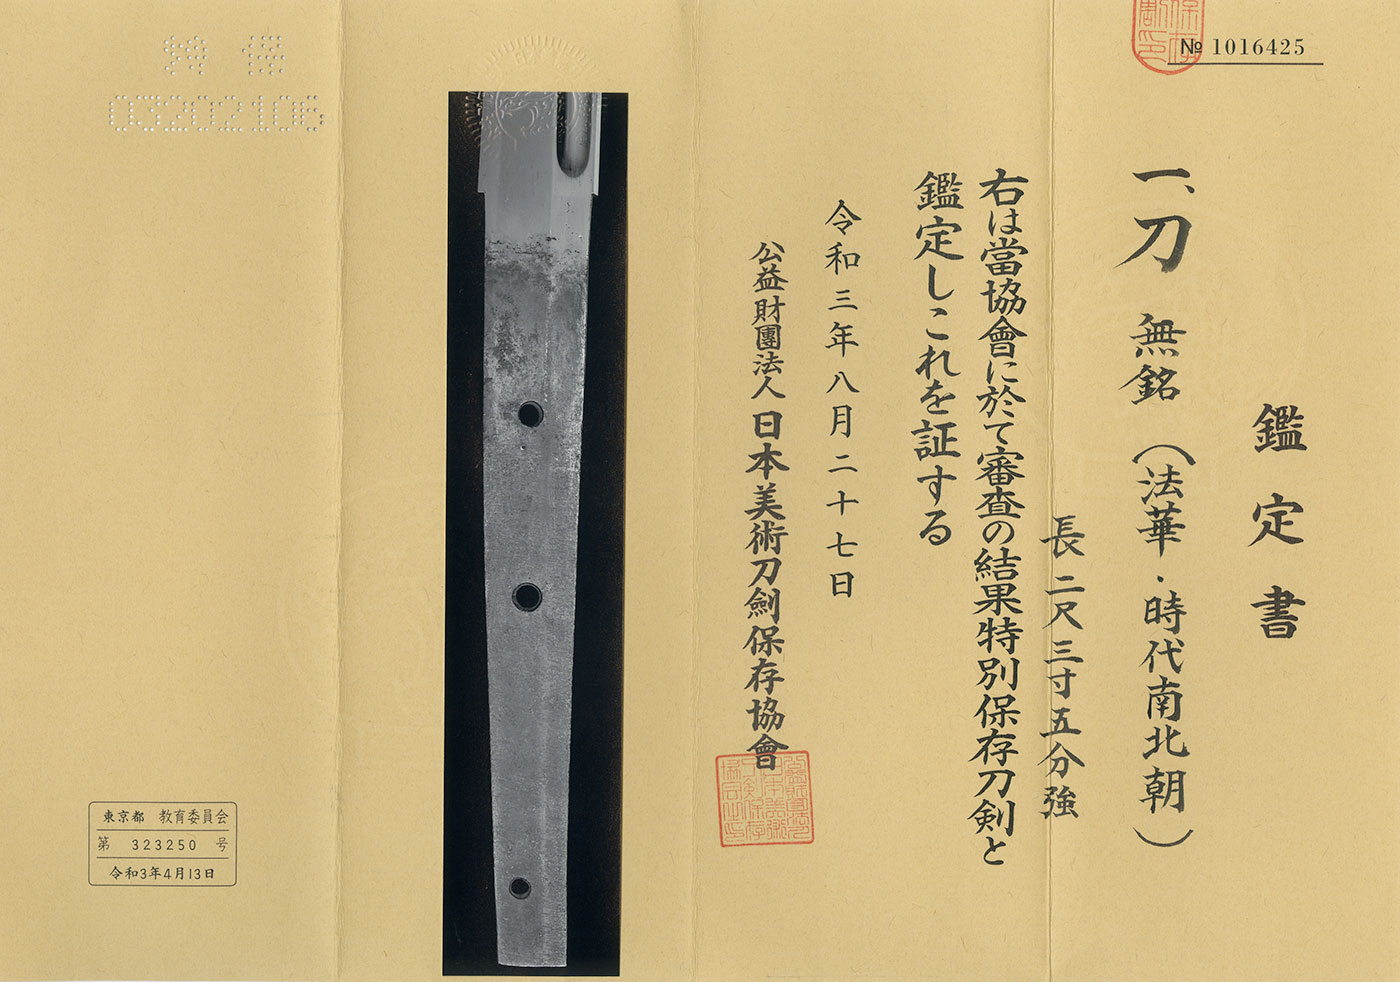 № 1016425
鑑定書
一、刀 無銘（法華・時代南北朝）
長二尺三寸五分強
右は當協會に於て審査の結果特別保存刀剣と
鑑定しこれを証する
令和三年八月二十七日
公益財團法人 日本美術刀劍保存協會
特保
03202106
東京都 教育委員会
第 323250 号
令和3年4月13日